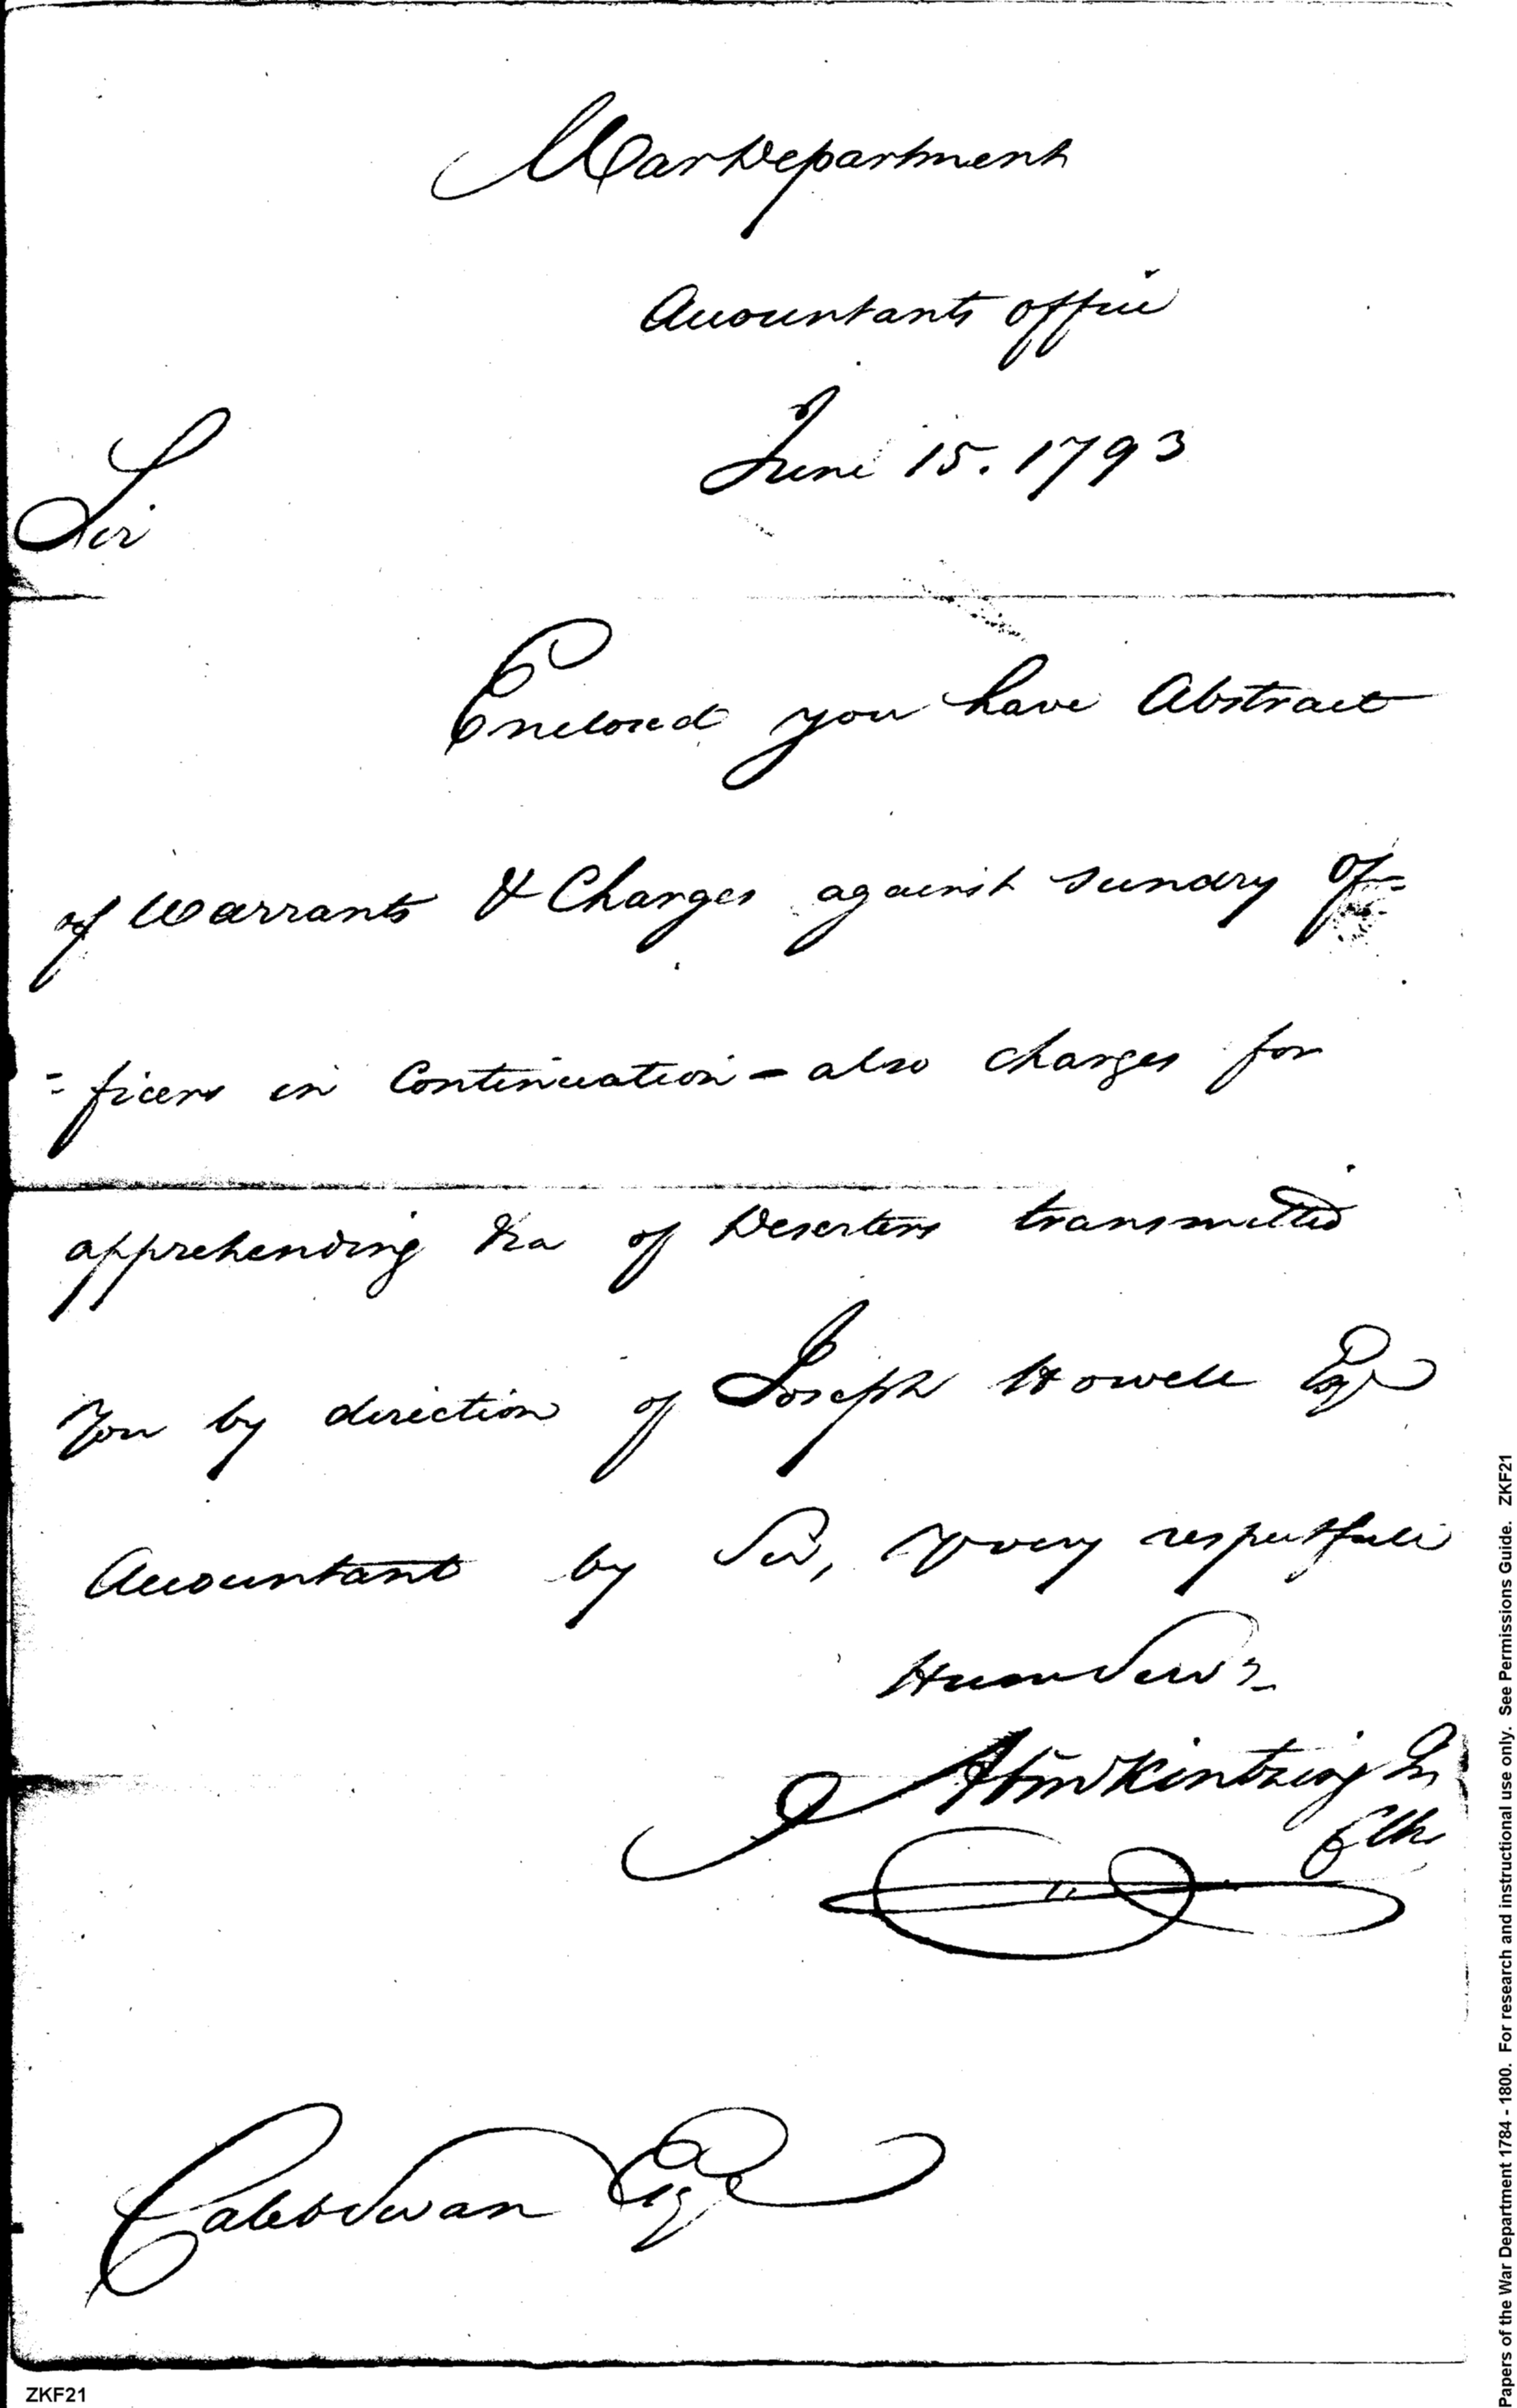 War Department
Accountants office
June 15. 1793
Sir
Enclosed you have Abstract
of Warrants & Charges against sundry Of=
=ficers in Continuation - also charges for
apprehending &ca of Deserters transmitted
You by direction of Joseph Howell Esqr
Accountant by Sir, Yr very respectfull
Hum Servt
Abm Kintzing Jn
Clk
Caleb Swan Esqr
ZKF21
Papers of the War Department 1784 - 1800. For research and instructional use only. See Permissions Guide. ZKF21